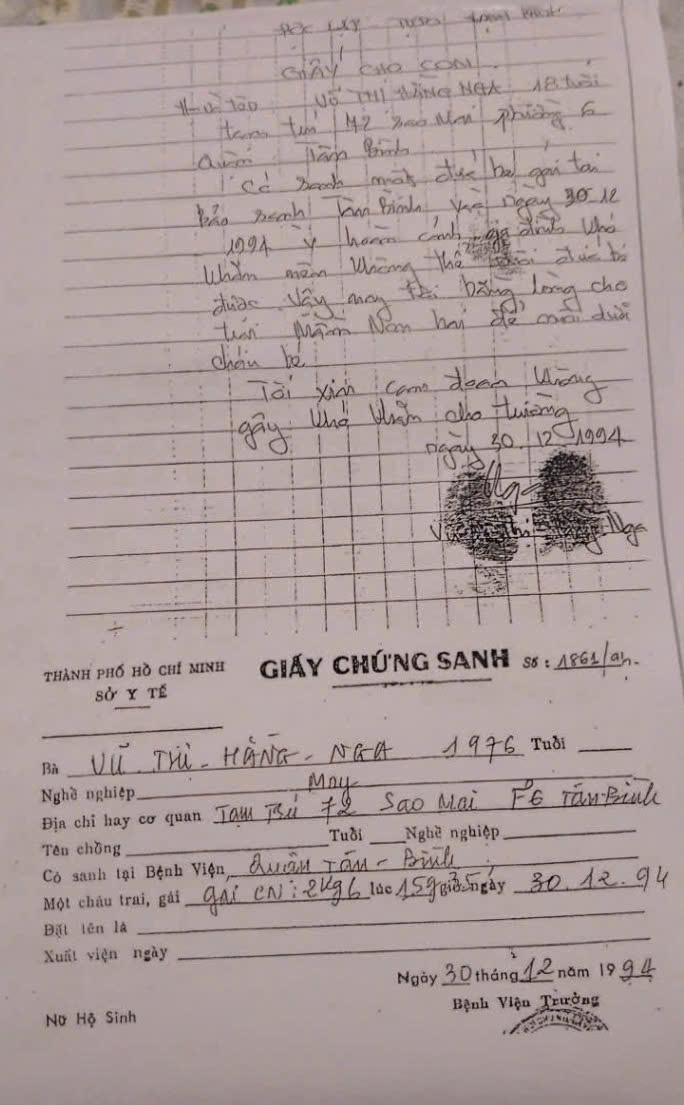 Độc Lập Tự Do Hạnh Phúc
GIẤY CHO CON
VŨ THỊ HẰNG NGA 18 tuổi
tạm trú 72 Sao Mai phường 6
Quận Tân Bình
Có sanh một đứa bé gái tại
Bảo sanh Tân Bình vào ngày 30-12
1994 vì hoàn cảnh gia đình khó
khăn nên không thể nuôi đứa bé
được vậy nay tôi bằng lòng cho
Mầm Non hai để nuôi dưỡi
cháu bé
Tôi xin cam đoan không
gây khó khăn cho trường
ngày 30.12.1994
Ng
Vũ Thị Nga
THÀNH PHỐ HỒ CHÍ MINH
SỞ Y TẾ
GIẤY CHỨNG SANH Số : 1861/an.
Bà VŨ - THỊ - HẰNG - NGA 1976 Tuổi
Nghề nghiệp May
Địa chỉ hay cơ quan Tạm Trú 72 Sao Mai F6 Tân-Bình
Tên chồng Tuổi Nghề nghiệp
Có sanh tại Bệnh Viện, Quận Tân - Bình
Một cháu trai, gái gái CN : 2kg6 lúc 15g35 giờ ngày 30.12.94
Đặt tên là
Xuất viện ngày
Ngày 30 tháng 12 năm 1994
Nữ Hộ Sinh
Bệnh Viện Trưởng